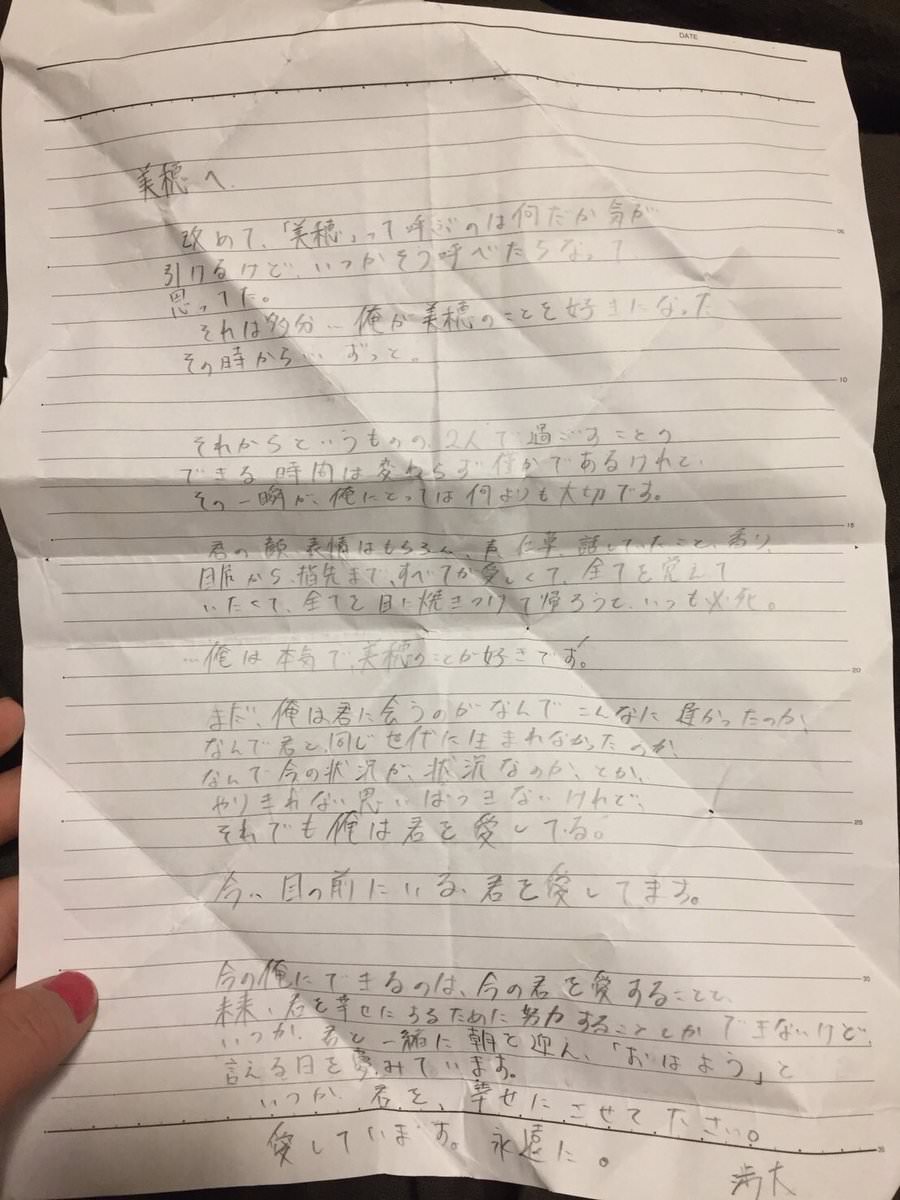 DATE
美穂へ.
改めて、「美穂」って呼ぶのは何だか気が
引けるけど、いつかそう呼べたらなって
思ってた。
それは多分…俺が美穂のことを好きになった
その時から… ずっと。
それからというものの、2人で過ごすことの
できる時間は変わらず僅かであるけれど、
その一瞬が、俺にとっては何よりも大切です。
君の顔、表情はもちろん、声、仁草、話していたこと、香り、
目尻から、指先まで、すべてが愛しくて、全てを覚えて
いたくて、全てを目に焼きつけて帰ろうと、いつも必死。
…俺は本気で、美穂のことが好きです。
まだ、俺は君に会うのがなんでこんなに遅かったのか、
なんで君と、同じ世代に生まれなかったのか、
なんで今の状況が、状況なのか、とか、
やりきれない思いはつきないけれど、
それでも俺は君を愛してる。
今、目の前にいる、君を愛してます。
今の俺にできるのは、今の君を愛することと、
未来、君を幸せにするために努力することしかできないけど、
いつか、君と一緒に朝を迎え、「おはよう」と
言える日を夢みています。
いつか、君を、幸せにさせてください。
愛しています。永遠に。
05
10
15
20
25
30
35